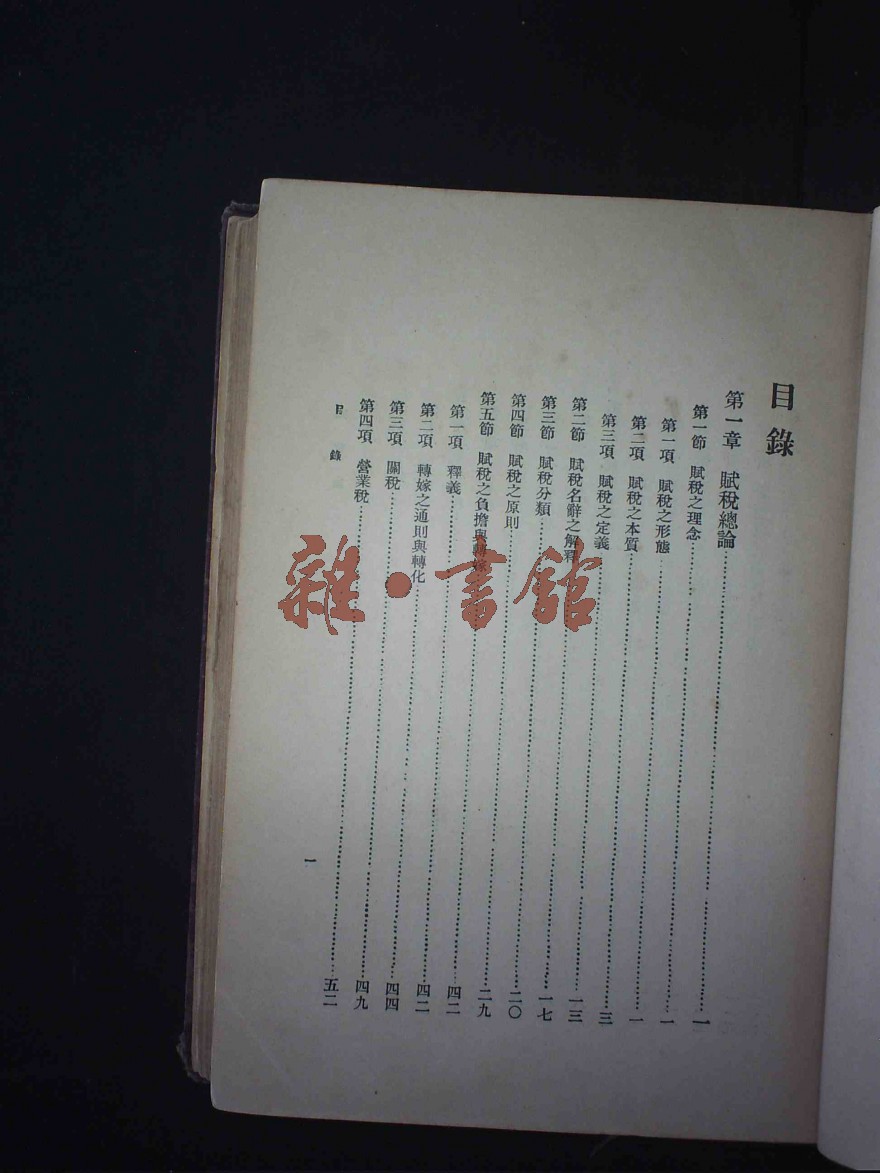 目錄
第一章 賦稅總論……一
第一節 賦稅之理念……一
第一項 賦稅之形態……一
第二項 賦稅之本質……三
第三項 賦稅之定義……一三
第二節 賦稅名辭之解釋……一七
第三節 賦稅分類……二〇
第四節 賦稅之原則……二九
第五節 賦稅之負擔與轉嫁……四二
第一項 釋義……四二
第二項 轉嫁之通則與轉化……四四
第三項 關稅……四九
第四項 營業稅……五二
目錄 一
雜·書館